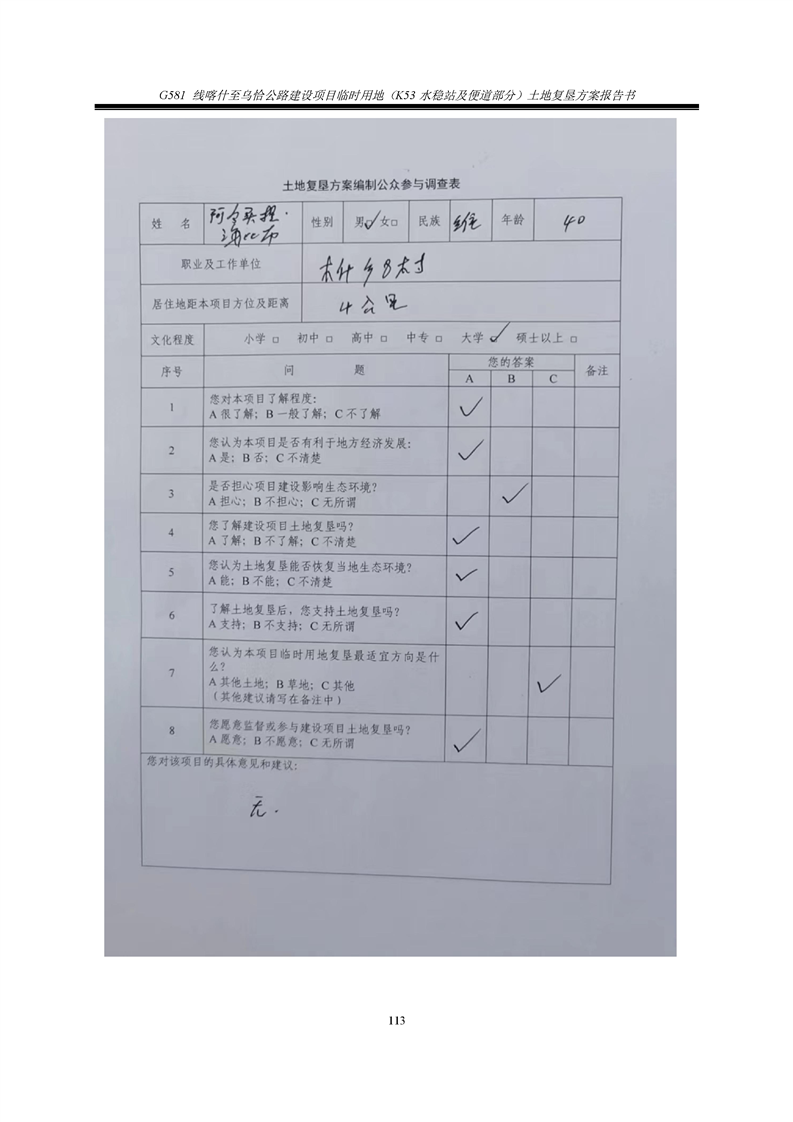 G581 线喀什至乌恰公路建设项目临时用地（K53 水稳站及便道部分）土地复垦方案报告书
土地复垦方案编制公众参与调查表
姓 名 性别 男☑ 女□ 民族 维 年龄 40
职业及工作单位
居住地距本项目方位及距离 4公里
文化程度 小学 □ 初中 □ 高中 □ 中专 □ 大学 ☑ 硕士以上 □
序号 问 题 您的答案 备注
A B C
1 您对本项目了解程度：
A 很了解；B 一般了解；C 不了解 ✓
2 您认为本项目是否有利于地方经济发展：
A 是；B 否；C 不清楚 ✓
3 是否担心项目建设影响生态环境？
A 担心；B 不担心；C 无所谓 ✓
4 您了解建设项目土地复垦吗？
A 了解；B 不了解；C 不清楚 ✓
5 您认为土地复垦能否恢复当地生态环境？
A 能；B 不能；C 不清楚 ✓
6 了解土地复垦后，您支持土地复垦吗？
A 支持；B 不支持；C 无所谓 ✓
7 您认为本项目临时用地复垦最适宜方向是什
么？
A 其他土地；B 草地；C 其他 ✓
（其他建议请写在备注中）
8 您愿意监督或参与建设项目土地复垦吗？
A 愿意；B 不愿意；C 无所谓 ✓
您对该项目的具体意见和建议：
无.
113